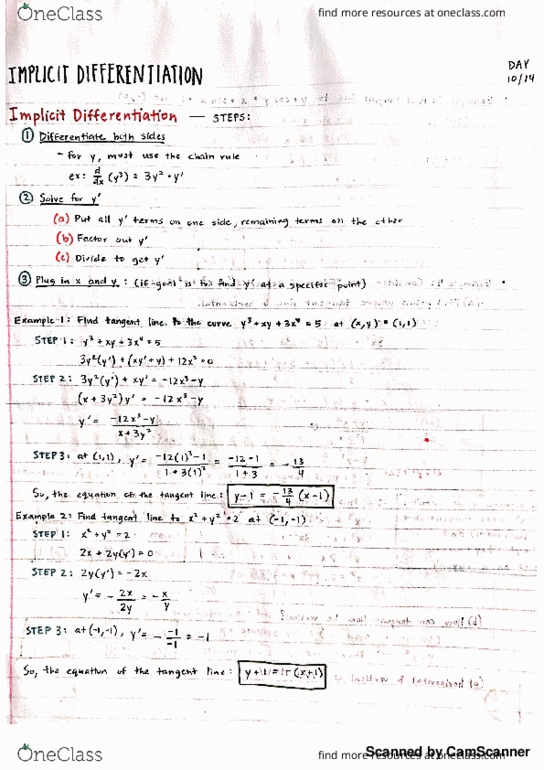 OneClass
find more resources at oneclass.com
IMPLICIT DIFFERENTIATION
DAY
10/14
Implicit Differentiation — STEPS:
① Differentiate both sides
- for y, must use the chain rule
ex: d/dx (y³) = 3y² · y'
② Solve for y'
(a) Put all y' terms on one side, remaining terms on the other
(b) Factor out y'
(c) Divide to get y'
③ Plug in x and y : (if goal is to find y' at a specific point)
Example 1: Find tangent line to the curve y³+xy+3x⁴=5 at (x,y) = (1,1)
STEP 1: y³+xy+3x⁴=5
3y²(y') + (xy'+y) + 12x³=0
STEP 2: 3y²(y') + xy' = -12x³-y
(x+3y²)y' = -12x³-y
y' = -12x³-y / x+3y²
STEP 3: at (1,1), y' = -12(1)³-1 / 1+3(1)² = -12-1 / 1+3 = -13/4
So, the equation of the tangent line: y-1 = -13/4 (x-1)
Example 2: Find tangent line to x²+y²=2 at (-1,-1)
STEP 1: x²+y²=2
2x+2y(y')=0
STEP 2: 2y(y')=-2x
y' = -2x/2y = -x/y
STEP 3: at (-1,-1), y' = - -1/-1 = -1
So, the equation of the tangent line:
OneClass
find more resources at oneclass.com
Scanned by CamScanner